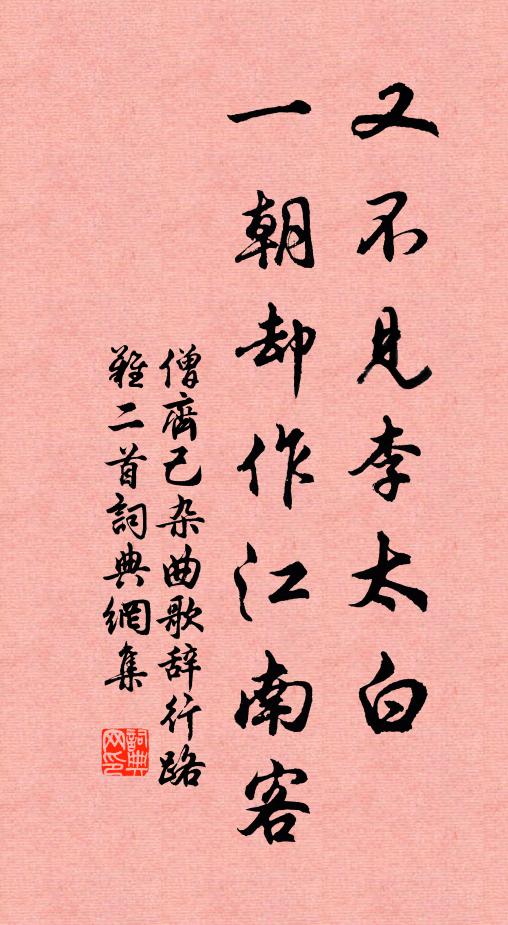 又不見李太白
一朝却作江南客
僧齊己杂曲歌辞行路
難二首詞典網集
詞典
网印